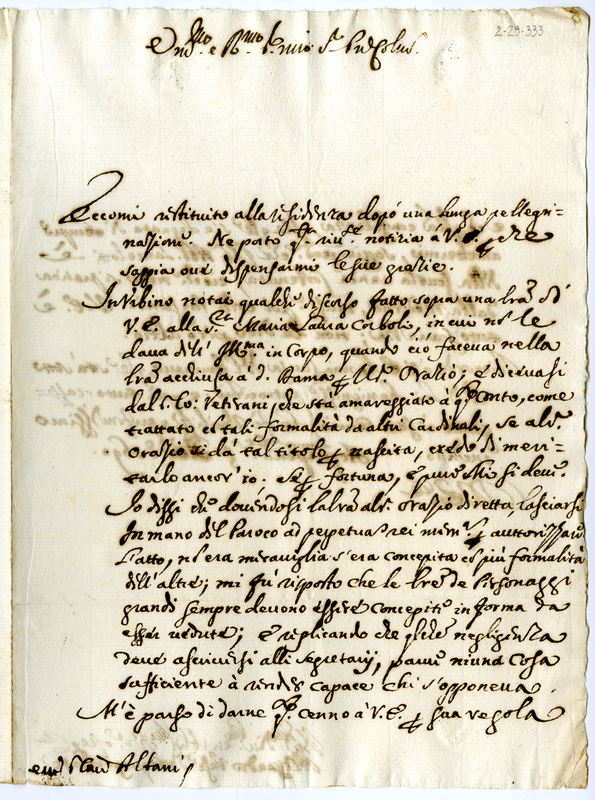 2-29-333
Em.mo e R.mo S.r mio S.r Pad. Colmo.
Eccomi restituito alla residenza dopò una lunga pellegri=
nazione. Ne porto q.ta riv.te notizia à V. E. che
sappia ove dispensarmi le sue grazie.
In Urbino notai qualche discorso fatto sopra una lra di
V. E. alla S.ra Maria Laura Corboli, in cui nō le
dava dell' Ill.ma in Corpo, quando ciò faceva nella
lra acchiusa à d. Dama p Orazio; e dicevasi
dal Veterani, che stà amareggiato à q.to conto, come
trattato cō tali formalità da altri Cardinali, se al S.r
Orazio si dà tal titolo p nascita, credo di meri=
tarlo ancor' io. Se p fortuna, e pure Mi si deve.
Io dissi che dovendosi la lra al S.r Orazio diretta, lasciarsi
In mano del Paroco ad perpetuā rei mem. p auttorizzare
l'atto, nō era meraviglia s'era concepita cō più formalità
dell'altre; mi fù risposto che le lre de Personaggi
grandi sempre devono essere Concepite in forma da
esser vedute; e replicando che negligenza
deve ascriversi alli Segretarij, parve niuna Cosa
sufficiente à render capace chi s'opponeva.
M'è parso di darne q.to cenno à V. E. p sua regola
Albani